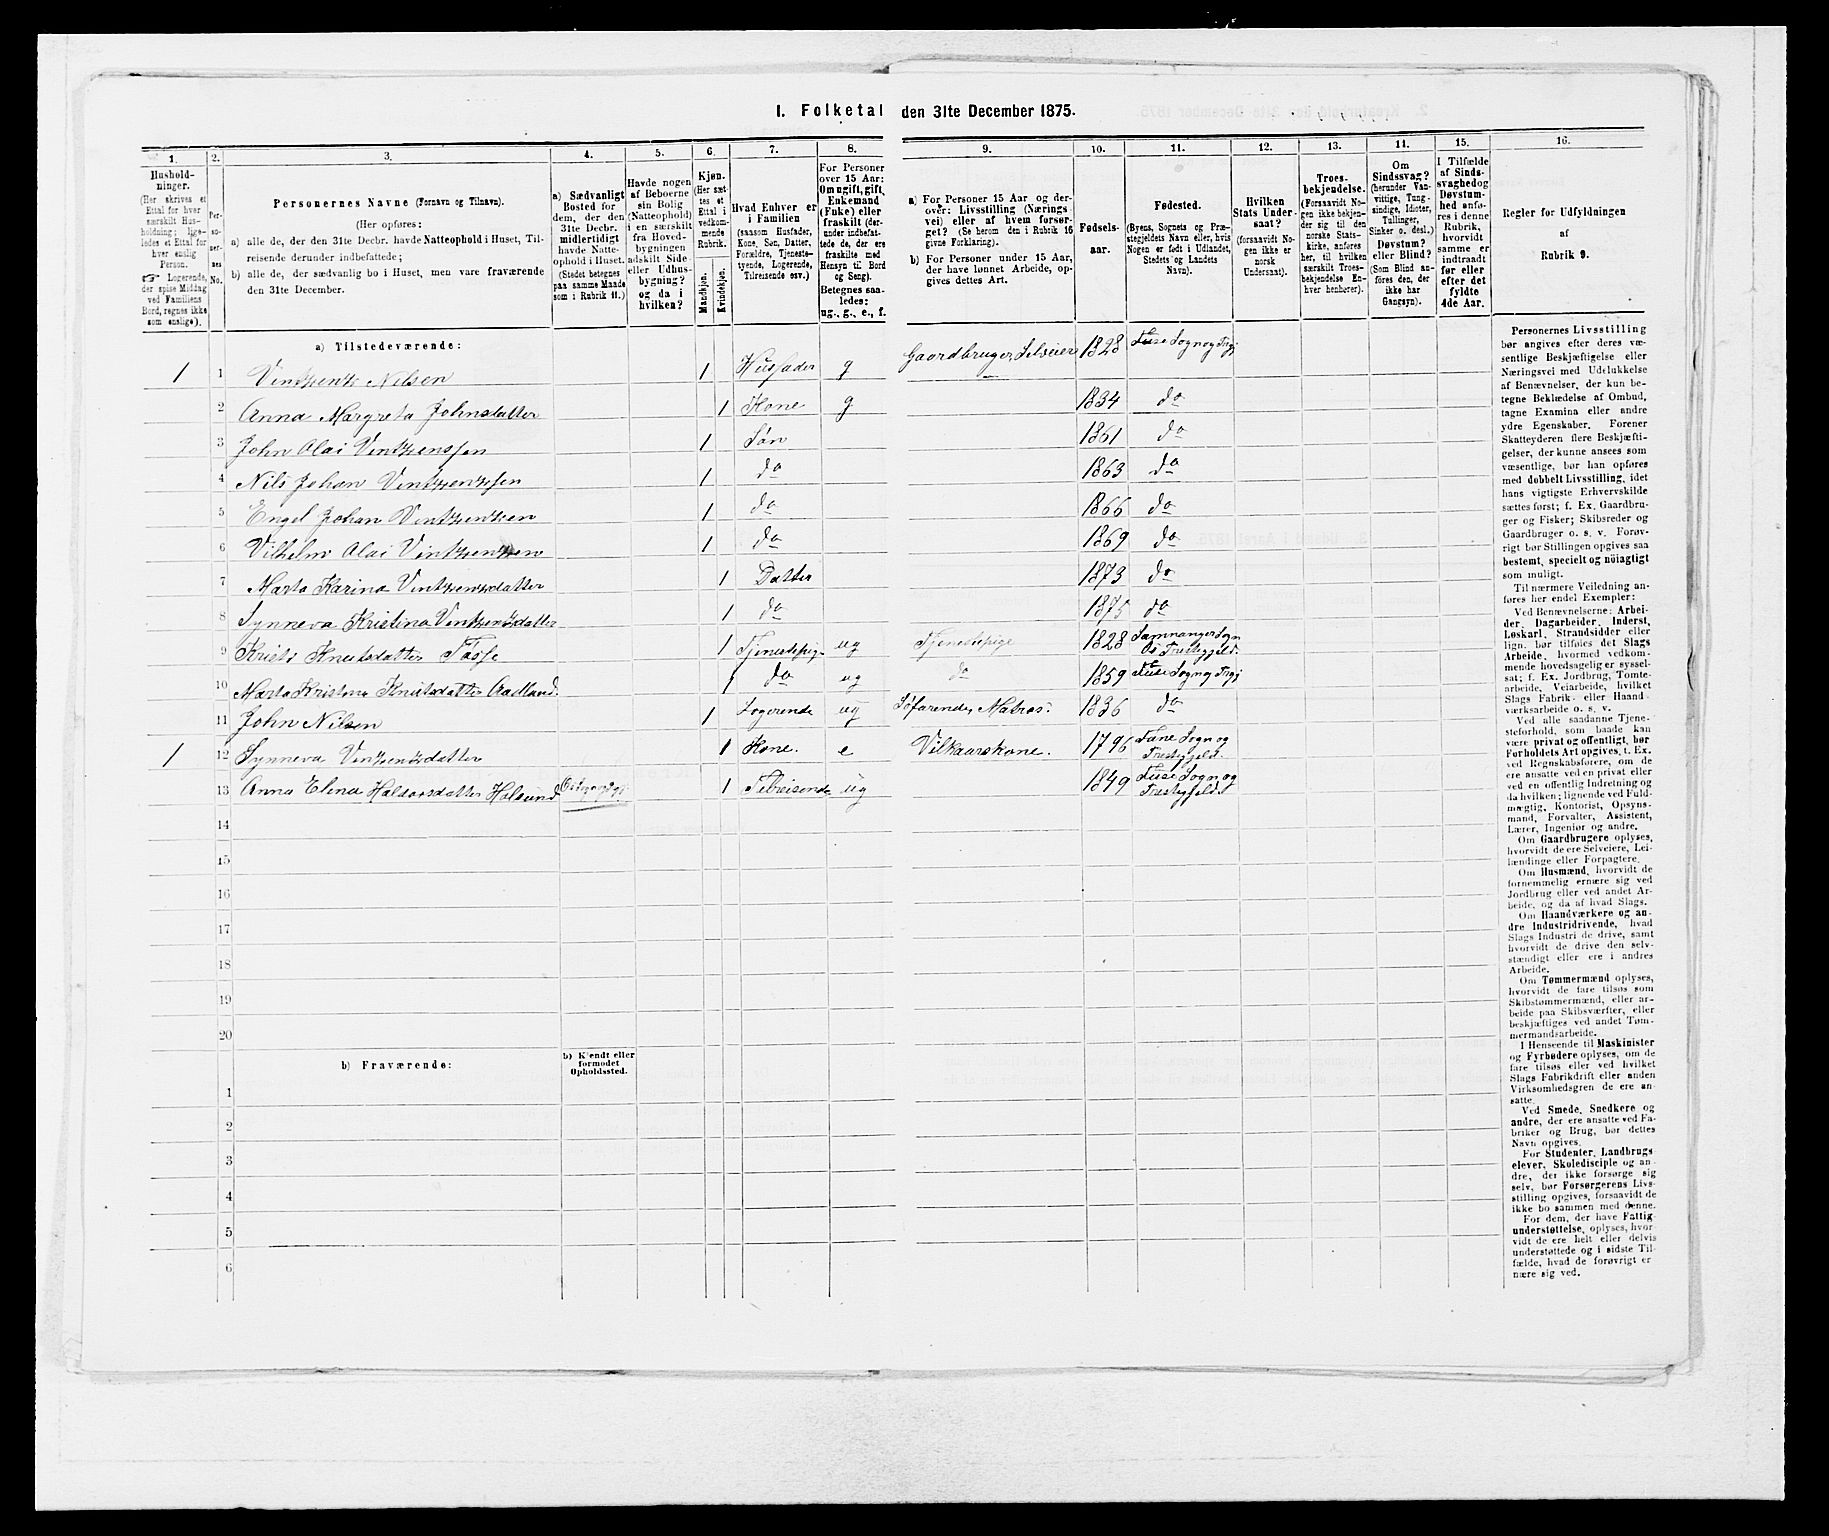 I. Folketal den 31te December 1875.
1. 2. 3. 4. 5. 6. 7. 8. 9. 10. 11. 12. 13. 11. 15. 16.
Hushold-
ninger.
(Her skrives et
Ettal for hver
særskilt Hus-
holdning; lige-
ledes et Ettal for
hver enslig
Person.
Logerende,
der spise Middag
ved Familiens
Bord, regnes ikke
som enslige).
Per-
so-
ner-
nes
No.
Personernes Navne (Fornavn og Tilnavn).
(Her opføres:
a) alle de, der den 31te Decbr. havde Natteophold i Huset, Til-
reisende derunder indbefattede;
b) alle de, der sædvanlig bo i Huset, men vare fraværende
den 31te December.
a) Sædvanligt
Bosted for
dem, der den
31te Decbr.
midlertidigt
havde Natte-
ophold i Huset.
(Stedet betegnes
paa samme Maade
som i Rubrik 11.)
Havde nogen
af Beboerne
sin Bolig
(Natteophold)
i en særskilt
fra Hoved-
bygningen
adskilt Side-
eller Udhus-
bygning?
og da i
hvilken?
Kjøn.
(Her sæt-
tes et
Ettal i
vedkom-
mende
Rubrik.
Mandkjøn.
Kvindekjøn.
Hvad Enhver er
i Familien
(saasom Husfader,
Kone, Søn, Datter,
Forældre, Tjeneste-
tyende, Logerende,
Tilreisende osv.)
For Personer
over 15 Aar:
Om ugift, gift,
Enkemand
(Enke) eller
fraskilt (der-
under indbefat-
tede de, der ere
fraskilte med
Hensyn til Bord
og Seng).
Betegnes saa-
ledes:
ug., g., e., f.
a) For Personer 15 Aar og der-
over: Livsstilling (Nærings-
vei) eller af hvem forsør-
get? (Se herom den i Rubrik 16
givne Forklaring).
b) For Personer under 15 Aar,
der have lønnet Arbeide, op-
gives dettes Art.
Fødsels-
aar.
Fødested.
(Byens, Sognets og Præ-
stegjeldets Navn eller, hvis
Nogen er født i Udlandet,
Stedets og Landets
Navn).
Hvilken
Stats Under-
saat?
(forsaavidt No-
gen ikke er
norsk
Undersaat).
Troes-
bekjendelse.
(Forsaavidt No-
gen ikke bekjen-
der sig til den
norske Stats-
kirke, anføres
her, til hvilken
særskilt Troes-
bekjendelse En-
hver henhører).
Om
Sindssvag?
(herunder Van-
vittige, Tung-
sindige, Idioter,
Tullinger,
Sinker o. desl.)
Døvstum?
eller Blind?
(Som Blind an-
føres den, der
ikke har
Gangsyn).
I Tilfælde
af Sinds-
svaghed og
Døvstum-
hed anfø-
res i denne
Rubrik,
hvorvidt
samme er
indtraadt
før eller
efter det
fyldte
4de Aar.
Regler for Udfyldningen
af
Rubrik 9.
a) Tilstedeværende:
1 1 Vintzents Nilsen 1 Husfader g Gaardbruger, Selveier 1828 Fuse Sogn og
2 Anna Margreta Johnsdatter 1 Kone g 1834 do
3 John Olai Vintzenssen 1 Søn 1861 do
4 Nils Johan Vintzentzsen 1 do 1863 do
5 Engel Johan Vintzentzen 1 do 1866 do
6 Vilhelm Olai Vintzentzen 1 do 1869 do
7 Marta Karina Vintzentzdatter 1 Datter 1873 do
8 Synneva Kristina Vintzentsdatter 1 do 1875 do
9 Knutsdatter 1 Tjenestepig ug Tjenestepige 1828 Samnanger Sogn Os Prestegjeld.
10 Marta Kristina Knutsdatter Aadland. 1 do ug do 1859 Fuse Sogn og
11 John Nilsen 1 Logerende ug Søfarende, Matros. 1836 do
1 12 Synneva Vintzentsdatter 1 Kone. e Vilkaarskone. 1796 Fane Sogn og Prestegjeld.
13 Anna Elena Haldorsdatter 1 Tilreisende ug 1849 Fuse Sogn og Prestegjeldt
14
15
16
17
18
19
20
b) Fraværende:
b) Kjendt eller
formodet
Opholdssted.
1
2
3
4
5
6
Personernes Livsstilling
bør angives efter deres væ-
sentlige Beskjæftigelse eller
Næringsvei med Udelukkelse
af Benævnelser, der kun be-
tegne Beklædelse af Ombud,
tagne Examina eller andre
ydre Egenskaber. Forener
Skatteyderen flere Beskjæfti-
gelser, der kunne ansees som
væsentlige, bør han opføres
med dobbelt Livsstilling, idet
hans vigtigste Erhvervskilde
sættes først; f. Ex. Gaardbru-
ger og Fisker; Skibsreder og
Gaardbruger o. s. v. Forøv-
rigt bør Stillingen opgives saa
bestemt, specielt og nöiagtigt
som muligt.
Til nærmere Veiledning an-
føres her endel Exempler:
Ved Benævnelserne: Arbei-
der, Dagarbeider, Inderst,
Løskarl, Strandsidder eller
lign. bør tilføies det Slags
Arbeide, hvormed vedkom-
mende hovedsagelig er syssel-
sat; f. Ex. Jordbrug, Tomte-
arbeide, Veiarbeide, hvilket
Slags Fabrik- eller Haand-
værksarbeide o. s. v.
Ved alle saadanne Tjene-
steforhold, som baade kan
være privat og offentligt, bør
Forholdets Art opgives, t. Ex.
ved Regnskabsførere, om de
ere ansatte ved en privat eller
en offentlig Indretning og
da hvilken; lignende ved Fuld-
mægtig, Kontorist, Opsyns-
mand, Forvalter, Assistent,
Lærer, Ingeniør og andre.
Om Gaardbrugere oplyses,
hvorvidt de ere Selveiere, Lei-
lændinge eller Forpagtere.
Om Husmænd, hvorvidt de
fornemmelig ernære sig ved
Jordbrug eller ved andet Ar-
beide, og da af hvad Slags.
Om Haandværkere og an-
dre Industridrivende, hvad
Slags Industri de drive, samt
hvorvidt de drive den selv-
stændigt eller ere i andres
Arbeide.
Om Tømmermænd oplyses,
hvorvidt de fare tilsøs som
Skibstømmermænd, eller ar-
beide paa Skibsværfter, eller
beskjæftiges ved andet Tøm-
mermandsarbeide.
I Henseende til Maskinister
og Fyrbødere oplyses, om de
fare tilsøs eller ved hvilket
Slags Fabrikdrift eller anden
Virksomhedsgren de ere an-
satte.
Ved Smede, Snedkere og
andre, der ere ansatte ved Fa-
briker og Brug, bør dettes
Navn opgives.
For Studenter, Landbrugs-
elever, Skoledisciple og an-
dre, der ikke forsørge sig
selv, bør Forsørgerens Livs-
stilling opgives, forsaavidt de
ikke bo sammen med denne.
For dem, der have Fattig-
understøttelse, oplyses, hvor-
vidt de ere helt eller delvis
understøttede og i sidste Til-
fælde, hvad de forøvrigt er
nære sig ved.